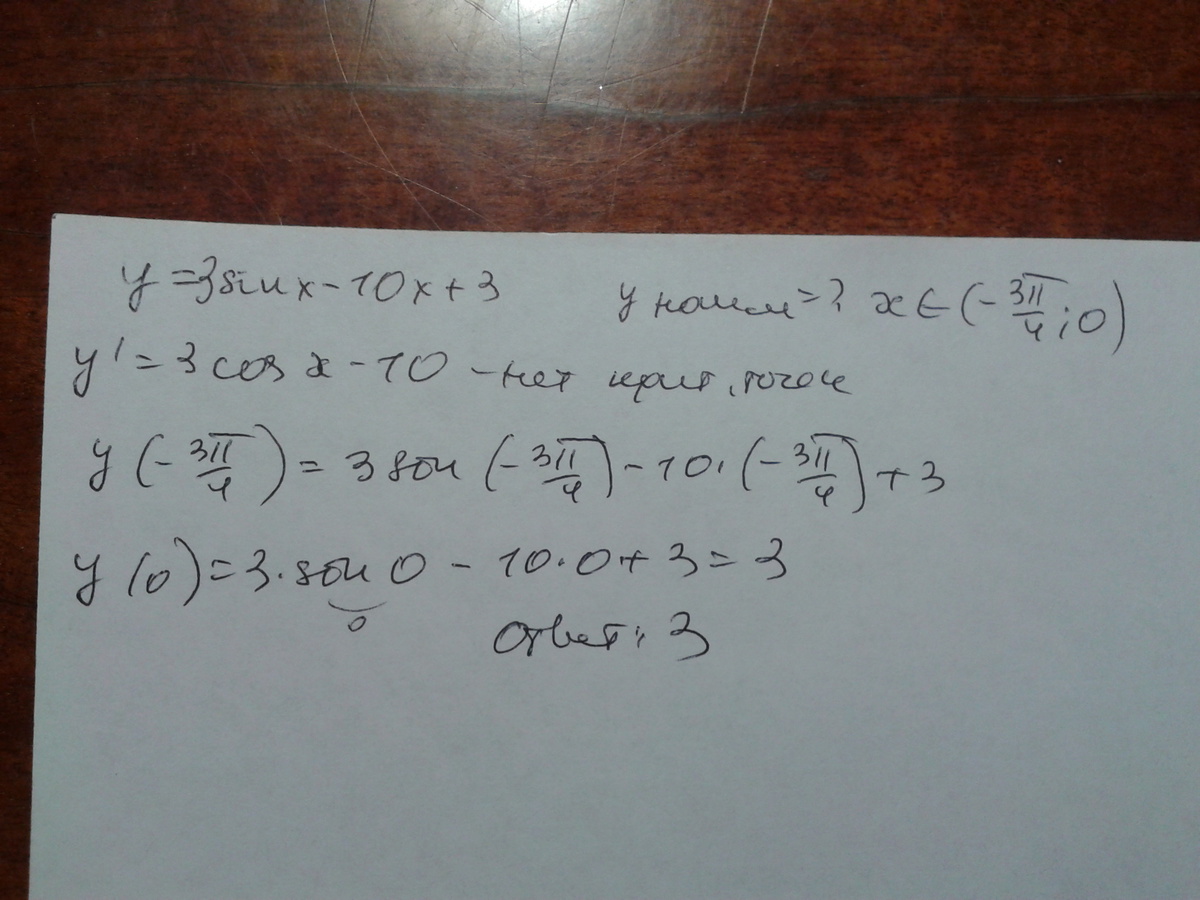 y = 3sin x - 10x + 3 y наим = ? x ∈ (-3π/4; 0)
y' = 3 cos x - 10 - нет крит. точек
y(-3π/4) = 3 sin (-3π/4) - 10 · (-3π/4) + 3
y(0) = 3 · sin 0 - 10 · 0 + 3 = 3
0
Ответ: 3